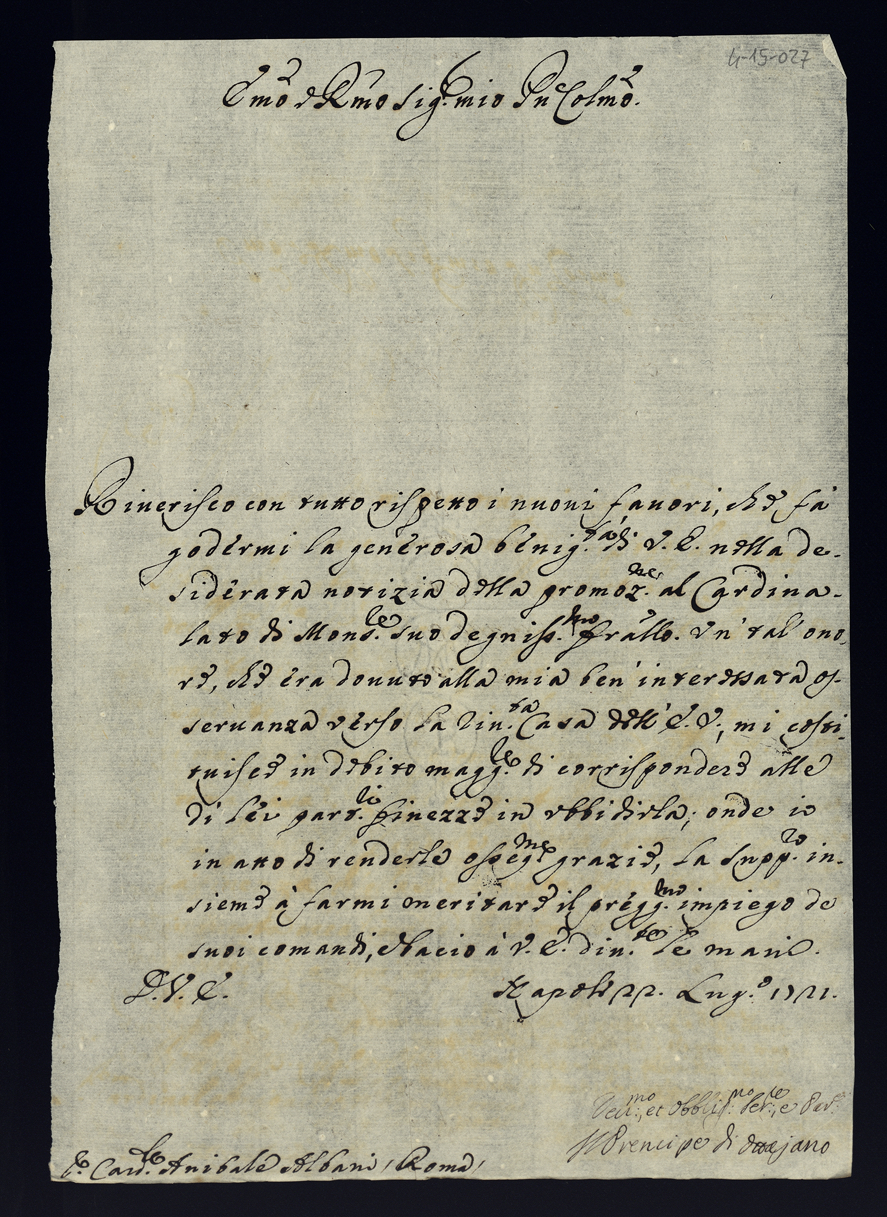 4-15-027
Emo e Rmo Sig.r mio Pñe Colmo.
Riverisco con tutto rispetto i nuovi favori, che fà
godermi la generosa benig.tà di V. E. nella de-
siderata notizia della promoz.ne al Cardina-
lato di Mons.re suo degniss.mo frãllo. Un' tal' ono-
re, che era dovuto alla mia ben' interessata os-
servanza verso la Din.ta Casa dell' E. V., mi costi-
tuisce in debito magg.re di corrispondere alle
di lei part.li finezze in ubbidirla; onde io
in atto di renderle osseq.me grazie, la supp.co in-
sieme à farmi meritare il pregg.mo impiego de
suoi comandi, e bacio à V. E. div.te le mani.
D. V. E. Napoli 22. Lug.o 1721.
Dev.mo, et Obblig.mo Ser.re e Par.
Il Prencipe di Ottajano
S.r Card.le Anibale Albani / Roma /